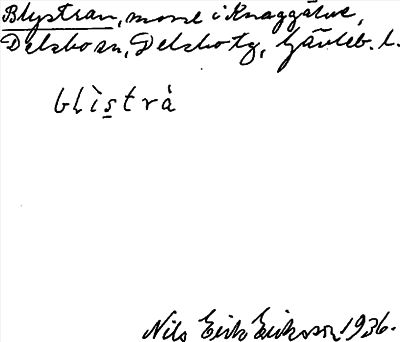 Blystran, mose i Knaggälve,
Delsbo sn, Delsbo tg, Gävleb. l.
blìstrà
Nils Erik Eriksson 1936.